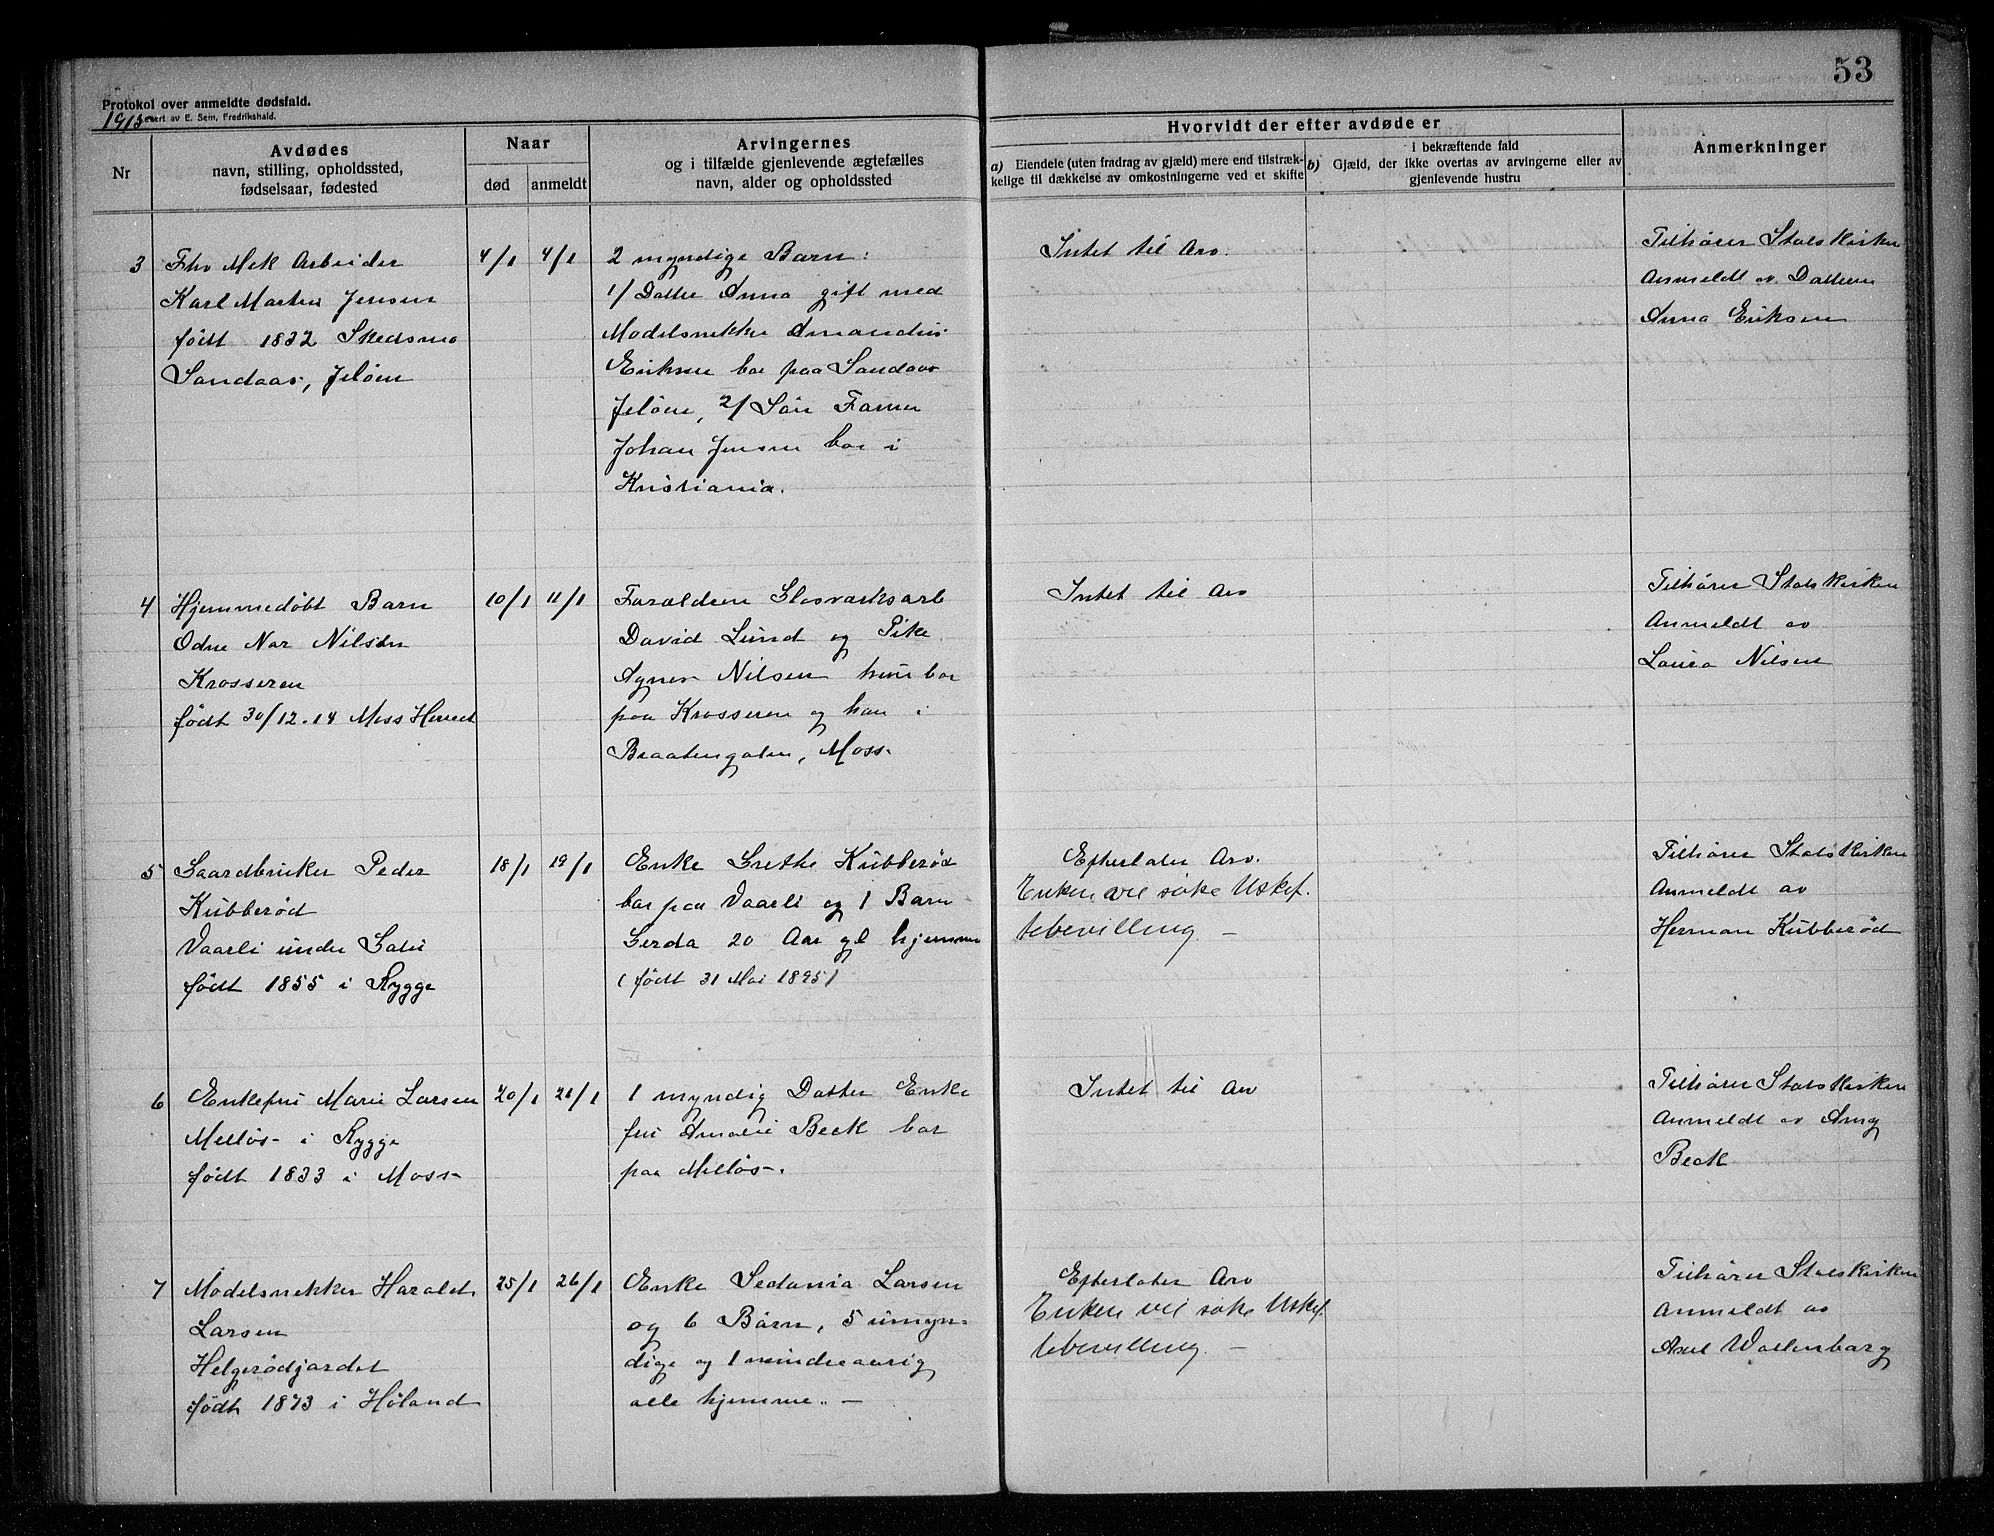 53
Protokol over anmeldte dødsfald.
1915
evert av E. Sem, Fredrikshald.
Nr
Avdødes
navn, stilling, opholdssted,
fødselsaar, fødested
Naar
død
anmeldt
Arvingernes
og i tilfælde gjenlevende ægtefælles
navn, alder og opholdssted
Hvorvidt der efter avdøde er
a) Eiendele (uten fradrag av gjæld) mere end tilstræk-
kelige til dækkelse av omkostningerne ved et skifte
i bekræftende fald
b) Gjæld, der ikke overtas av arvingerne eller av
gjenlevende hustru
Anmerkninger
3
Fhv Mek Arbeider
Karl Martin Jensen
født 1832 Skedsmo
Sandaas, Jeløen
4/1
4/1
2 myndige Barn:
1/ Datter Anna gift med
Modelsnekker Amandus
Eriksen bor paa Sandaas
Jeløen, 2/ Søn Farver
Johan Jensen bor i
Kristiania.
Intet til Arv.
Tilhører Statskirken
Anmeldt av Datteren
Anna Eriksen
4
Hjemmedøbt Barn
Odne Nar Nilsen
Krosseren
født 30/12.14 Moss Herred
10/1
11/1
Forældren Glasværksarb
David Lund og Pike
Agnes Nilsen hun bor
paa Krosseren og han i
Braatengaten, Moss-
Intet til Arv
Tilhører Statskirken
Anmeldt av
Laura Nilsen
5
Gaardbruker Peder
Kubberød
Vaarli under Galei
født 1855 i Rygge
18/1
19/1
Enke Grethe Kubberød
bor paa Vaarli og 1 Barn
Gerda 20 Aar gl hjemme
(født 31 Mai 1895)
Efterlater Arv.
Enken vil søke Uskif-
tebevilling. -
Tilhører Statskirken
Anmeldt av
Herman Kubberød
6
Enkefru Marie Larsen
Melløs- i Rygge
født 1833 i Moss-
20/1
21/1
1 myndig Datter Enke
fru Amalie Beck bor
paa Melløs-.
Intet til Arv
Tilhører Statskirken
Anmeldt av Amy
Beck
7
Modelsnekker Harald
Larsen
Helgerødjordet
født 1873 i Høland
25/1
26/1
Enke Sedania Larsen
og 6 Børn, 5 umyn-
dige og 1 mindreaarig
alle hjemme. -
Efterlater Arv
Enken vil søke Uskif-
tebevilling. -
Tilhører Statskirken
Anmeldt av
Axel Wollenbarg